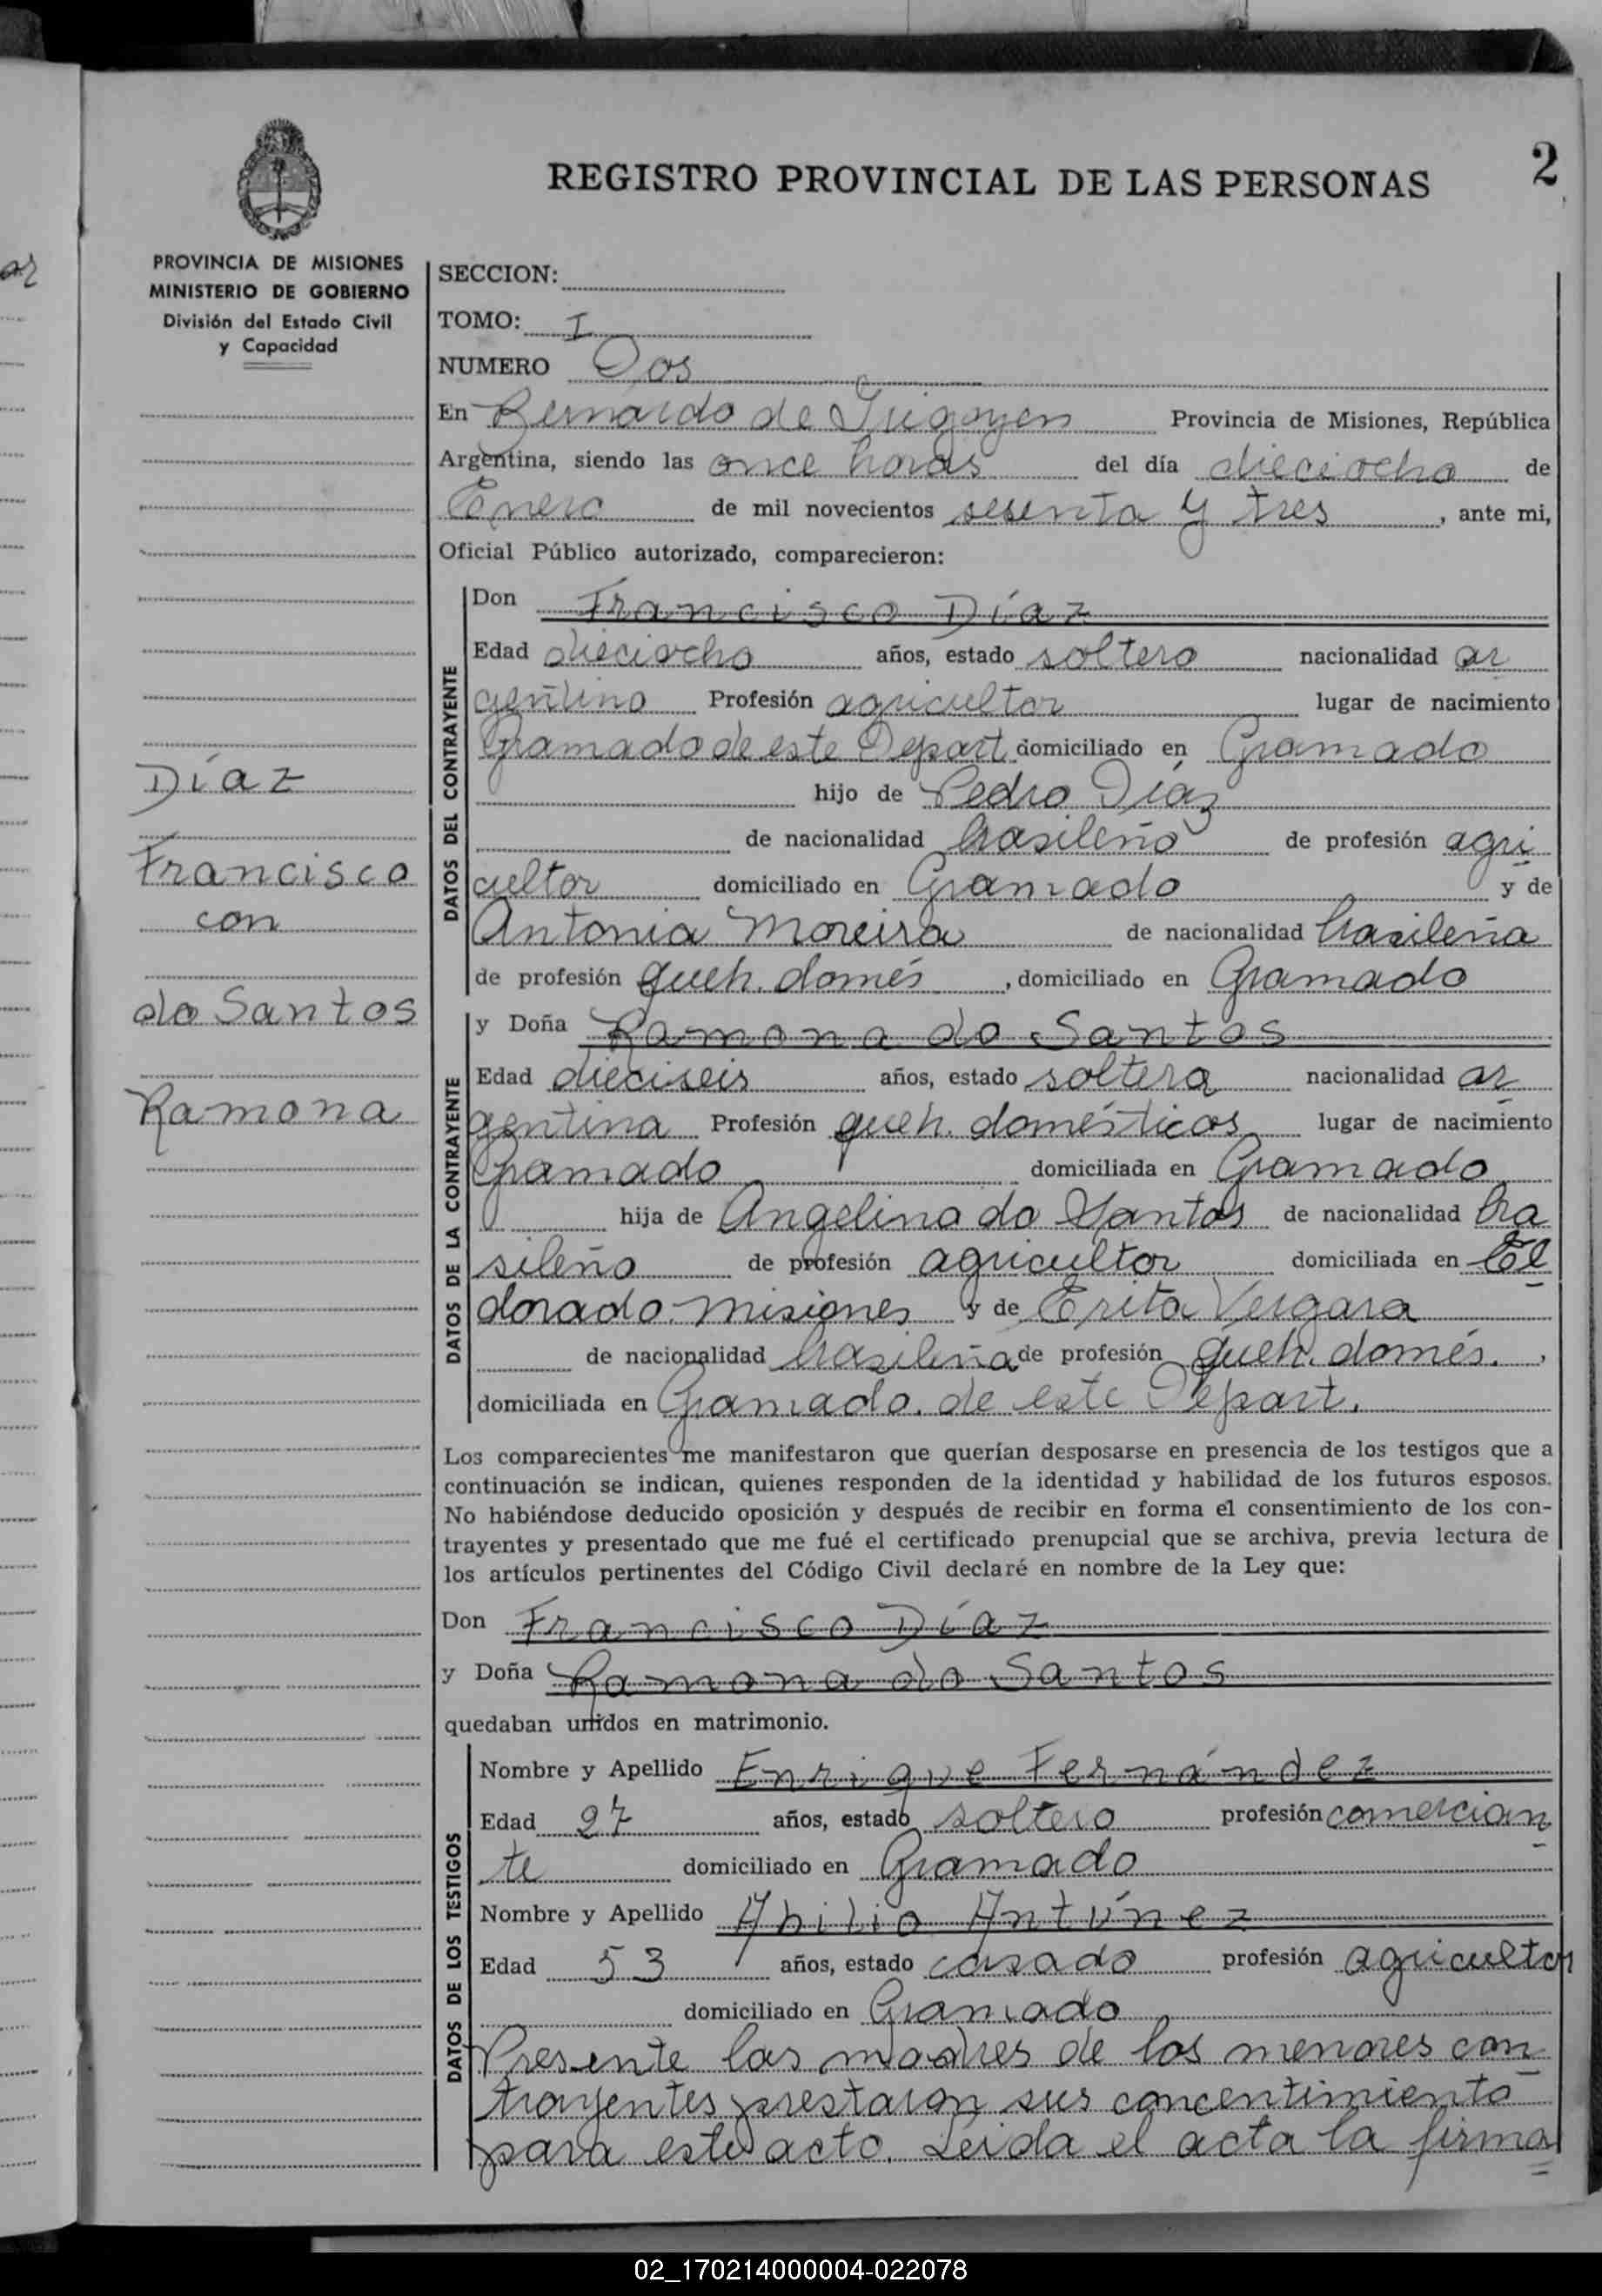 2
REGISTRO PROVINCIAL DE LAS PERSONAS
PROVINCIA DE MISIONES
MINISTERIO DE GOBIERNO
División del Estado Civil
y Capacidad
Díaz
Francisco
con
do Santos
Ramona
SECCION:
TOMO: I
NUMERO Dos
En Bernardo de Irigoyen Provincia de Misiones, República
Argentina, siendo las once horas del día dieciocho de
Enero de mil novecientos sesenta y tres, ante mi,
Oficial Público autorizado, comparecieron:
DATOS DEL CONTRAYENTE
Don Francisco Díaz
Edad dieciocho años, estado soltero nacionalidad ar
gentino Profesión agricultor lugar de nacimiento
Gramado de este Depart. domiciliado en Gramado
hijo de Pedro Díaz
de nacionalidad brasileño de profesión agri
cultor domiciliado en Gramado y de
Antonia Moreira de nacionalidad brasileña
de profesión queh. domés, domiciliado en Gramado
DATOS DE LA CONTRAYENTE
y Doña Ramona do Santos
Edad dieciseis años, estado soltera nacionalidad ar
gentina Profesión queh. domésticos lugar de nacimiento
Gramado domiciliada en Gramado
hija de Angelino do Santos de nacionalidad bra
sileño de profesión agricultor domiciliada en El
dorado. Misiones y de Erita Vergara
de nacionalidad brasileña de profesión queh. domés.,
domiciliada en Gramado. de este Depart.
Los comparecientes me manifestaron que querían desposarse en presencia de los testigos que a
continuación se indican, quienes responden de la identidad y habilidad de los futuros esposos.
No habiéndose deducido oposición y después de recibir en forma el consentimiento de los con-
trayentes y presentado que me fué el certificado prenupcial que se archiva, previa lectura de
los artículos pertinentes del Código Civil declaré en nombre de la Ley que:
Don Francisco Díaz
y Doña Ramona do Santos
quedaban unidos en matrimonio.
DATOS DE LOS TESTIGOS
Nombre y Apellido Enrique Fernández
Edad 27 años, estado soltero profesión comercian
te domiciliado en Gramado
Nombre y Apellido Abilio Antúnez
Edad 53 años, estado casado profesión agricultor
domiciliado en Gramado
Presente las madres de los menores con
trayentes prestaron sus concentimiento
para este acto. Leida el acta la firma
02_170214000004-022078